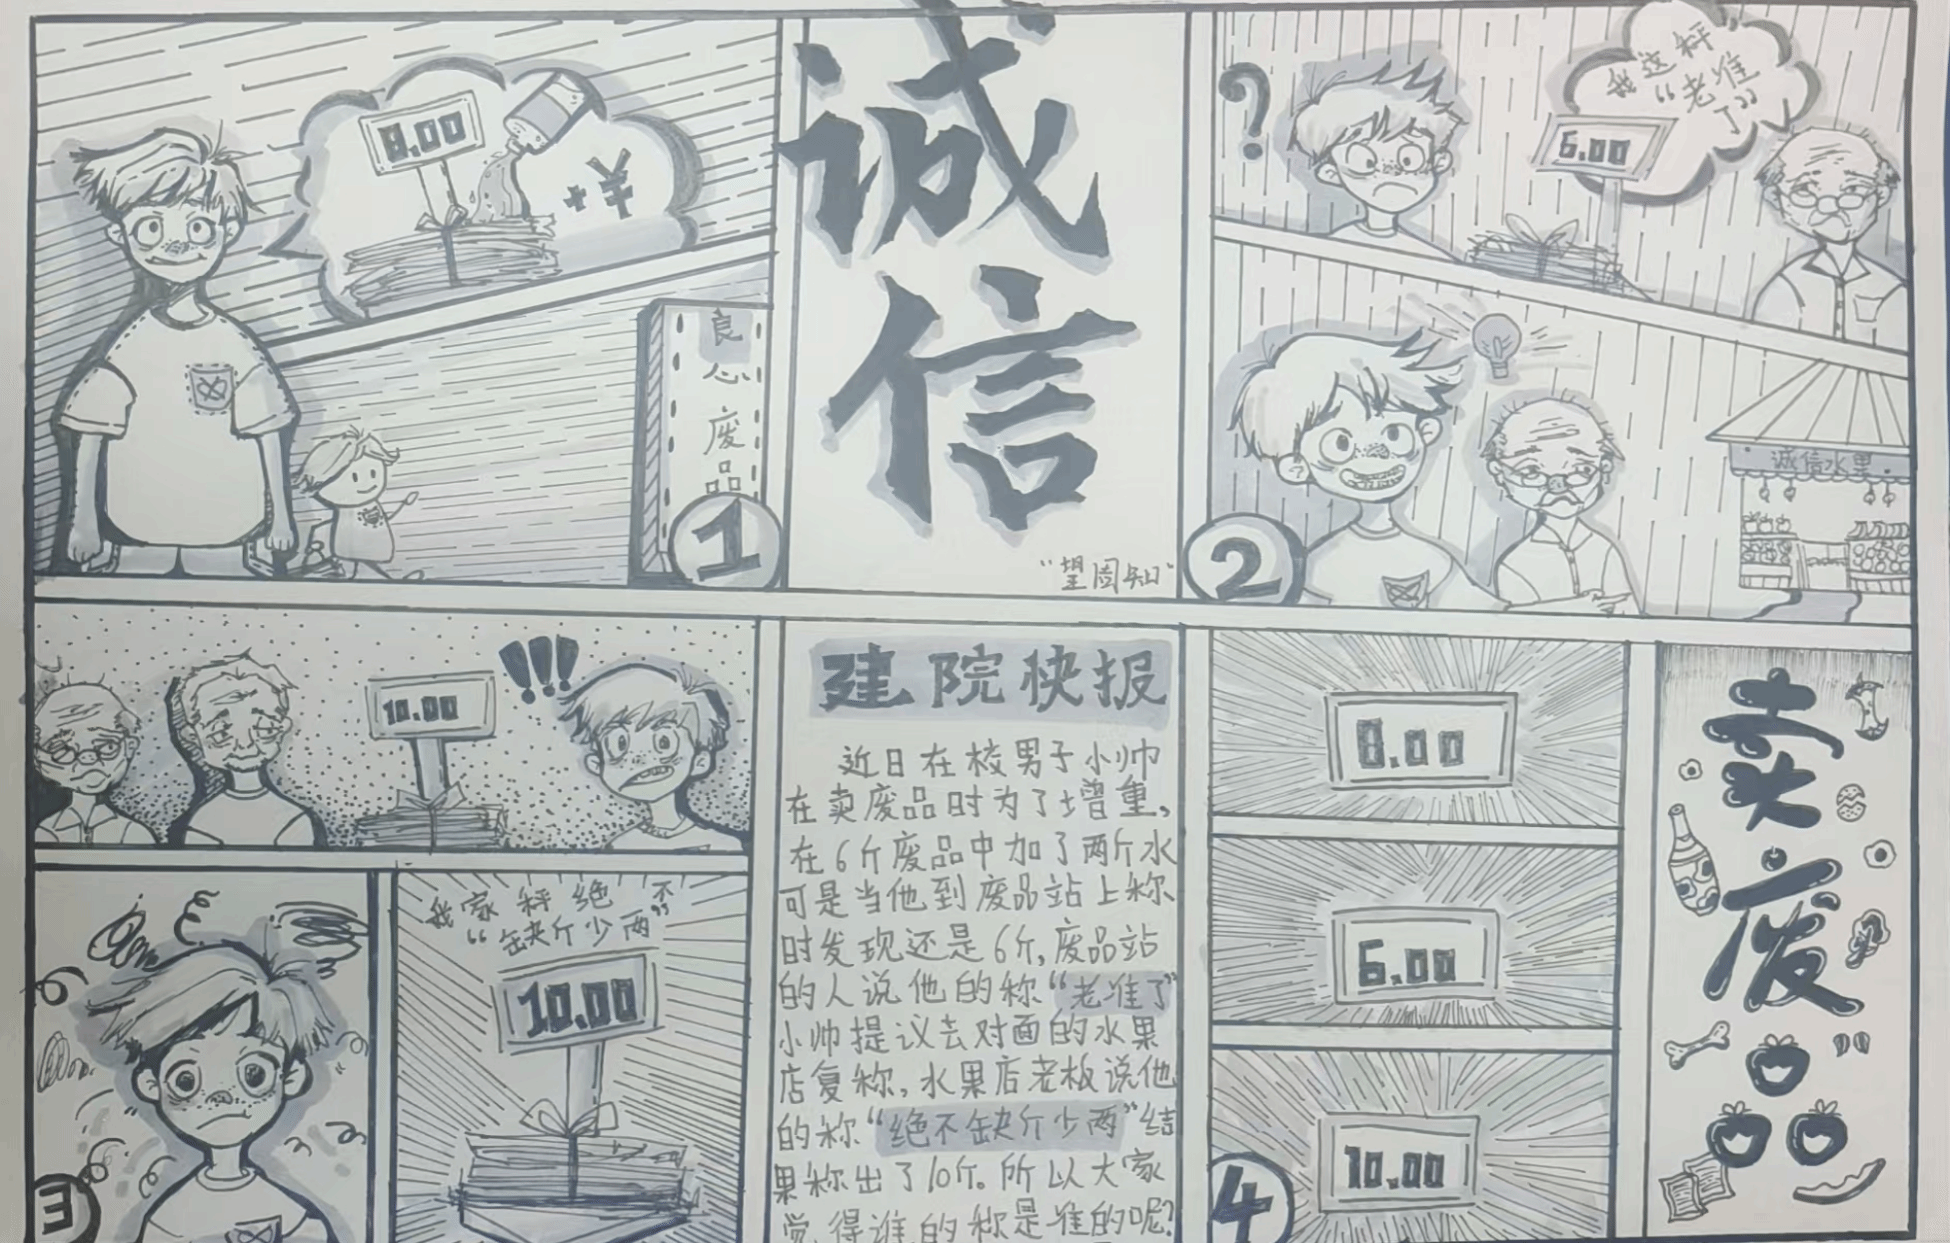 8.00
+¥
良心废品
1
诚信
"望周知"
?
我这秤
"老准
了"
6.00
诚信水果
2
!!!
10.00
我家秤绝不
"缺斤少两"
10.00
3
建院快报
近日在校男子小帅
在卖废品时为了增重,
在6斤废品中加了两斤水
可是当他到废品站上称
时发现还是6斤,废品站
的人说他的称"老准了"
小帅提议去对面的水果
店复称,水果店老板说他
的称"绝不缺斤少两"结
果称出了10斤。所以大家
觉得谁的称是准的呢?
8.00
6.00
10.00
4
卖废品